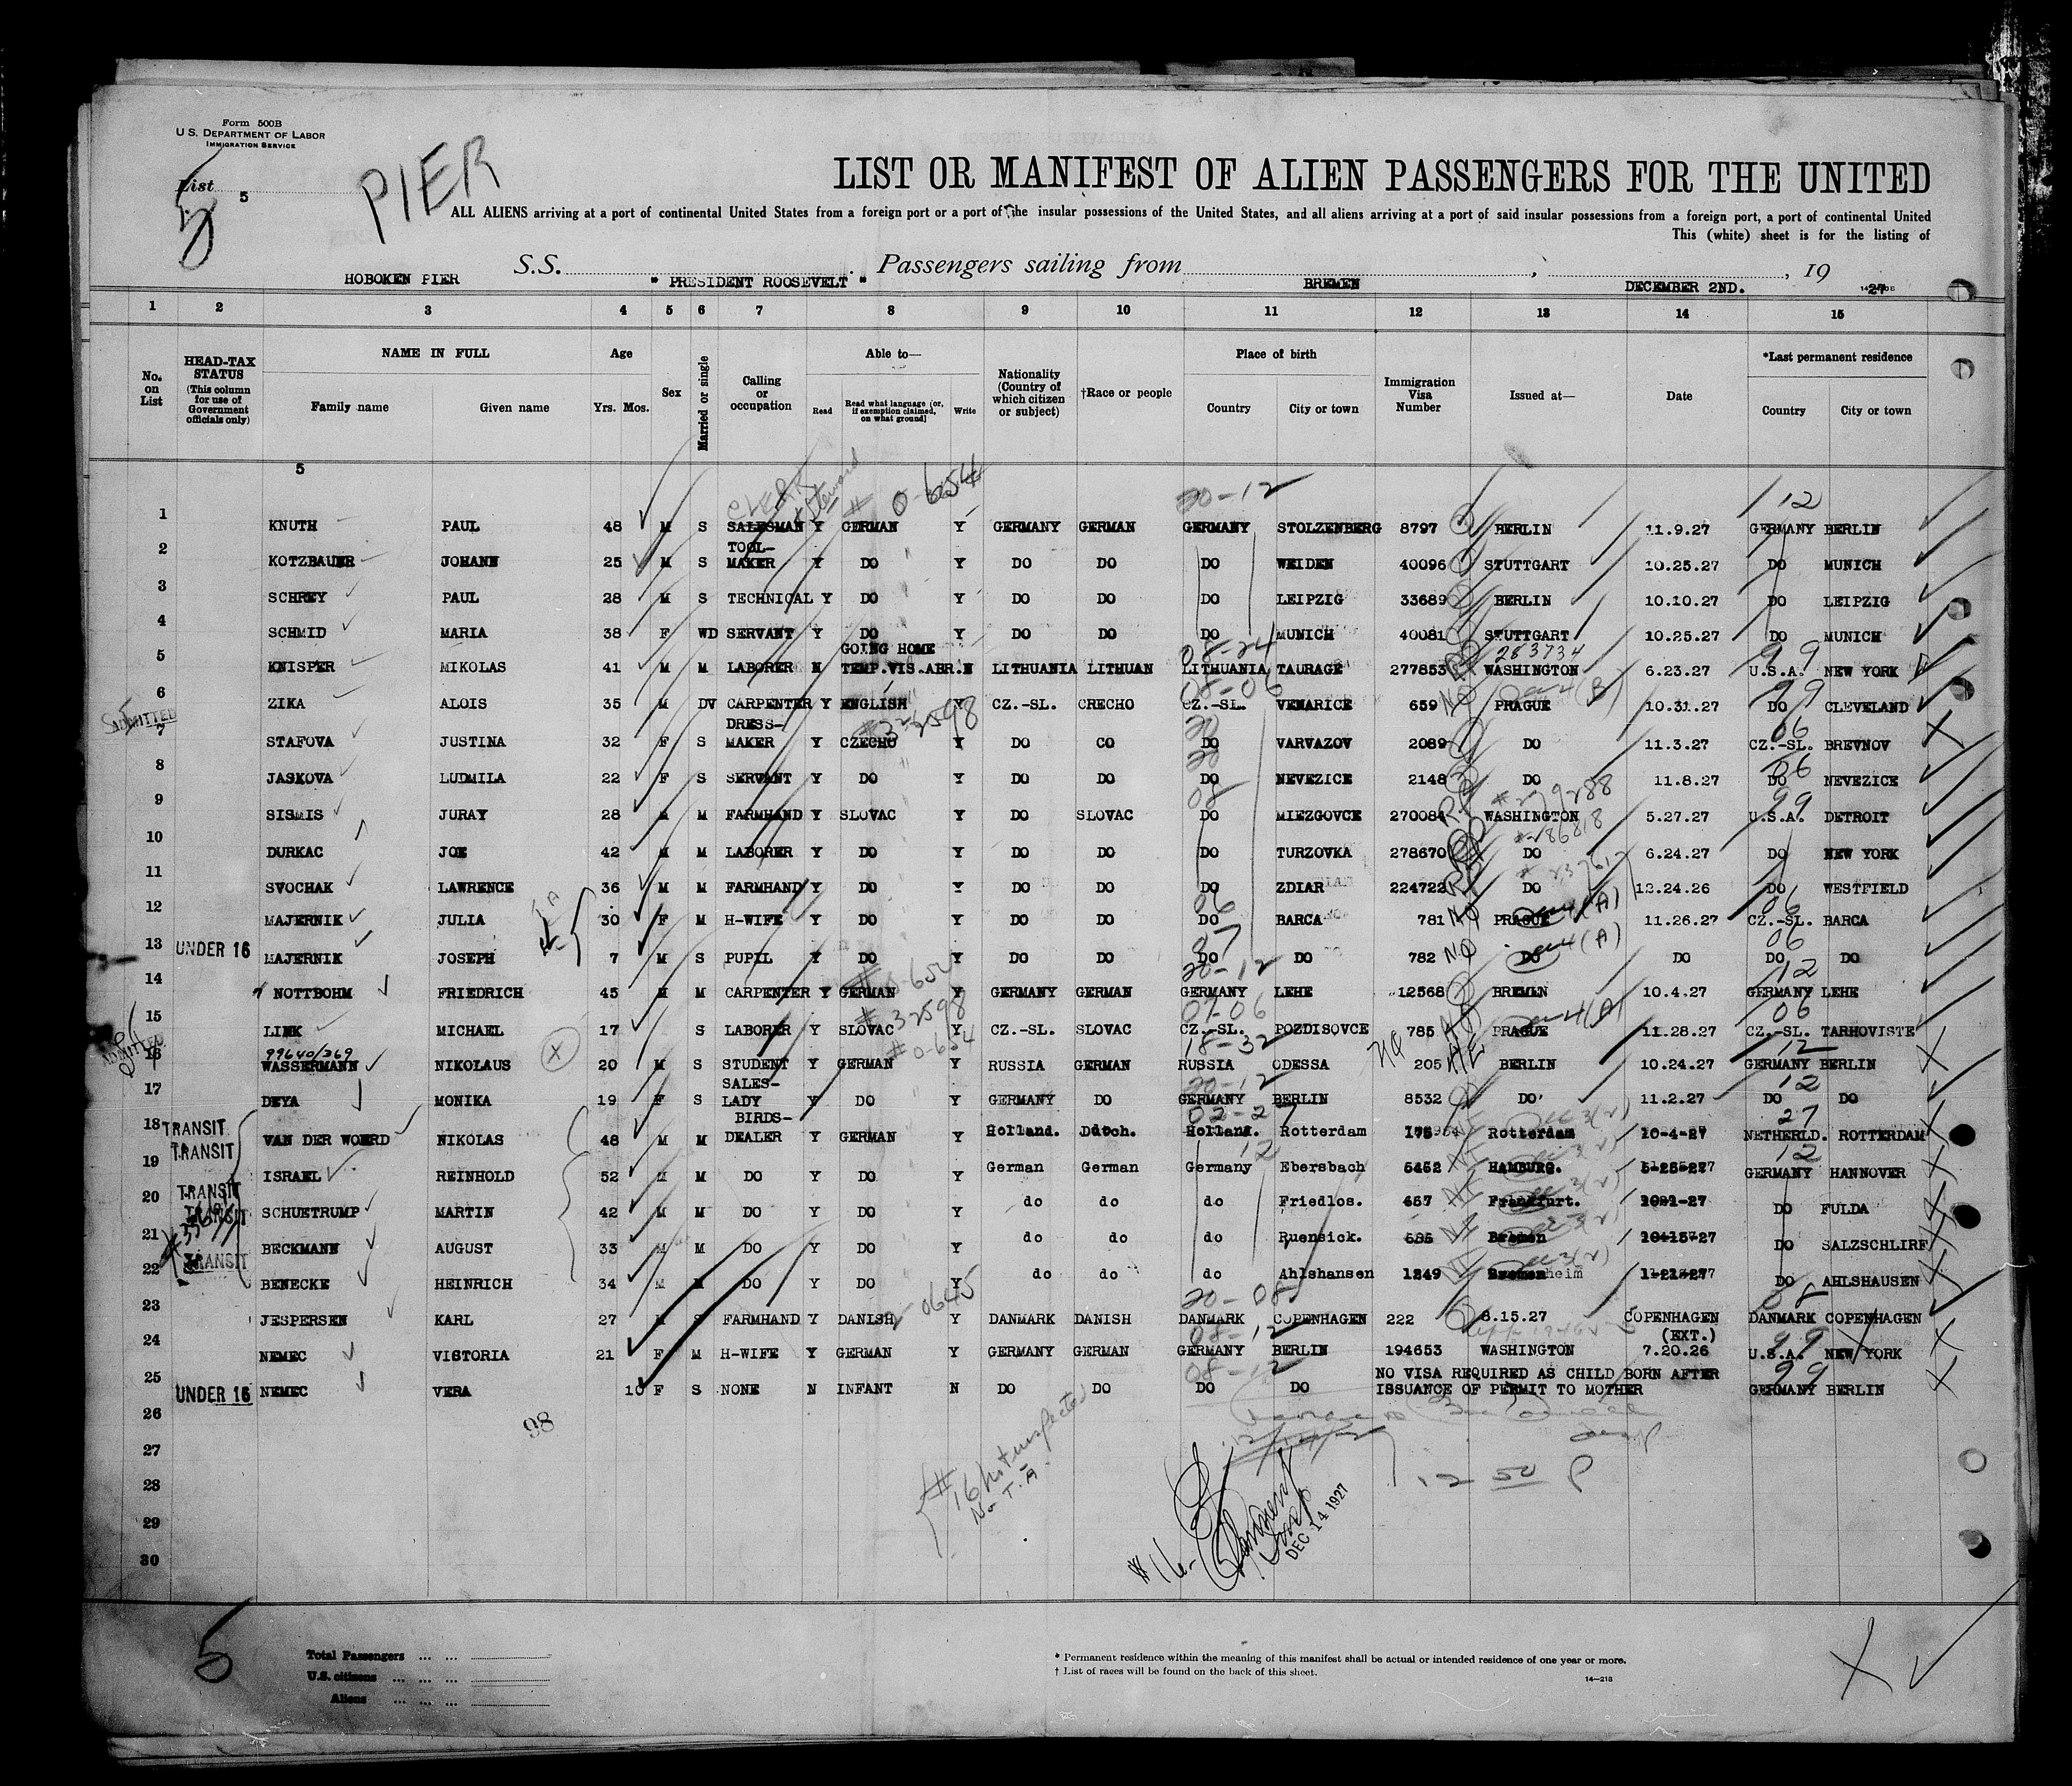 Form 500B
U.S. DEPARTMENT OF LABOR
IMMIGRATION SERVICE
List 5
5
PIER
LIST OR MANIFEST OF ALIEN PASSENGERS FOR THE UNITED
ALL ALIENS arriving at a port of continental United States from a foreign port or a port of the insular possessions of the United States, and all aliens arriving at a port of said insular possessions from a foreign port, a port of continental United
This (white) sheet is for the listing of
HOBOKEN PIER S.S. " PRESIDENT ROOSEVELT " Passengers sailing from BREMEN , DECEMBER 2ND. , 19 27
1 2 3 4 5 6 7 8 9 10 11 12 13 14 15
No. on List HEAD-TAX STATUS (This column for use of Government officials only) NAME IN FULL Family name Given name Age Yrs. Mos. Sex Married or single Calling or occupation Able to— Read Read what language [or, if exemption claimed, on what ground] Write Nationality (Country of which citizen or subject) †Race or people Place of birth Country City or town Immigration Visa Number Issued at— Date *Last permanent residence Country City or town
5
CLERK Steward # 0-654 20-12 12
1 KNUTH PAUL 48 M S SALESMAN Y GERMAN Y GERMANY GERMAN GERMANY STOLZENBERG 8797 BERLIN 11.9.27 GERMANY BERLIN
2 KOTZBAUER JOHANN 25 M S TOOL-MAKER Y DO Y DO DO DO WEIDEN 40096 STUTTGART 10.25.27 DO MUNICH
3 SCHREY PAUL 28 M S TECHNICAL Y DO Y DO DO DO LEIPZIG 33689 BERLIN 10.10.27 DO LEIPZIG
4 SCHMID MARIA 38 F WD SERVANT Y DO Y DO DO DO MUNICH 40081 STUTTGART 10.25.27 DO MUNICH
GOING HOME 08-24 283734 99
5 KNISPER MIKOLAS 41 M M LABORER N TEMP.VIS.ABR.N LITHUANIA LITHUAN LITHUANIA TAURAGE 277853 WASHINGTON 6.23.27 U.S.A. NEW YORK
08-06 99
6 ADMITTED ZIKA ALOIS 35 M DV CARPENTER Y ENGLISH Y CZ.-SL. CRECHO CZ.-SL. VENARICE 659 NQ PRAGUE 10.31.27 DO CLEVELAND
#32598 20 06
7 STAFOVA JUSTINA 32 F S DRESS-MAKER Y CZECHO Y DO CO DO VARVAZOV 2089 DO 11.3.27 CZ.-SL. BREVNOV
20 06
8 JASKOVA LUDMILA 22 F S SERVANT Y DO Y DO DO DO NEVEZICE 2148 DO 11.8.27 DO NEVEZICE
08 #279288 99
9 SISMIS JURAY 28 M M FARMHAND Y SLOVAC Y DO SLOVAC DO MIEZGOVCE 270084 WASHINGTON 5.27.27 U.S.A. DETROIT
10 DURKAC JOE 42 M M LABORER Y DO Y DO DO DO TURZOVKA 278670 DO 6.24.27 DO NEW YORK
11 SVOCHAK LAWRENCE 36 M M FARMHAND Y DO Y DO DO DO ZDIAR 224722 DO 12.24.26 DO WESTFIELD
06 06
12 MAJERNIK JULIA 30 F M H-WIFE Y DO Y DO DO DO BARCA 781 NQ PRAGUE 11.26.27 CZ.-SL. BARCA
07 06
13 UNDER 16 MAJERNIK JOSEPH 7 M S PUPIL Y DO Y DO DO DO DO 782 NQ DO DO DO DO
20-12 12
14 NOTTBOHM FRIEDRICH 45 M M CARPENTER Y GERMAN Y GERMANY GERMAN GERMANY LEHE 12568 BREMEN 10.4.27 GERMANY LEHE
#32598 07-06 06
15 LINK MICHAEL 17 S LABORER Y SLOVAC Y CZ.-SL. SLOVAC CZ.-SL. POZDISOVCE 785 PRAGUE 11.28.27 CZ.-SL. TARHOVISTE
99640/369 #0-654 18-32 12
16 ADMITTED WASSERMANN NIKOLAUS 20 M S STUDENT Y GERMAN Y RUSSIA GERMAN RUSSIA ODESSA 205 BERLIN 10.24.27 GERMANY BERLIN
20-12 12
17 DEYA MONIKA 19 F S SALES-LADY Y DO Y GERMANY DO GERMANY BERLIN 8532 DO 11.2.27 DO DO
02-27 27
18 TRANSIT VAN DER WOERD NIKOLAS 48 M M BIRDS-DEALER Y GERMAN Y Holland. Dutch. Holland. Rotterdam Rotterdam 10-4-27 NETHERLD. ROTTERDAM
TRANSIT 12 12
19 ISRAEL REINHOLD 52 M M DO Y DO Y German German Germany Ebersbach HAMBURG. GERMANY HANNOVER
20 TRANSIT SCHUETRUMP MARTIN 42 M M DO Y DO Y do do do Friedlos. 657 Frankfurt. DO FULDA
TRANSIT
21 BECKMANN AUGUST 33 M M DO Y DO Y do do do Ruensick. Bremen DO SALZSCHLIRF
22 TRANSIT BENECKE HEINRICH 34 M M DO Y DO Y do do do Ahlshansen 1249 DO AHLSHAUSEN
0645 20-08 08
23 JESPERSEN KARL 27 M S FARMHAND Y DANISH Y DANMARK DANISH DANMARK COPENHAGEN 222 8.15.27 COPENHAGEN DANMARK COPENHAGEN
08-12 (EXT.) 99
24 NEMEC VISTORIA 21 F M H-WIFE Y GERMAN Y GERMANY GERMAN GERMANY BERLIN 194653 WASHINGTON 7.20.26 U.S.A. NEW YORK
08-12 99
25 UNDER 16 NEMEC VERA 10 F S NONE N INFANT N DO DO DO DO NO VISA REQUIRED AS CHILD BORN AFTER ISSUANCE OF PERMIT TO MOTHER GERMANY BERLIN
26
98
27
28
#16 not inspected
No T.A.
12 50 P
29
DEC 14 1927
30
#16-
5
Total Passengers ... ...
U.S. citizens ... ... ...
Aliens ... ... ...
* Permanent residence within the meaning of this manifest shall be actual or intended residence of one year or more.
† List of races will be found on the back of this sheet.
14—218